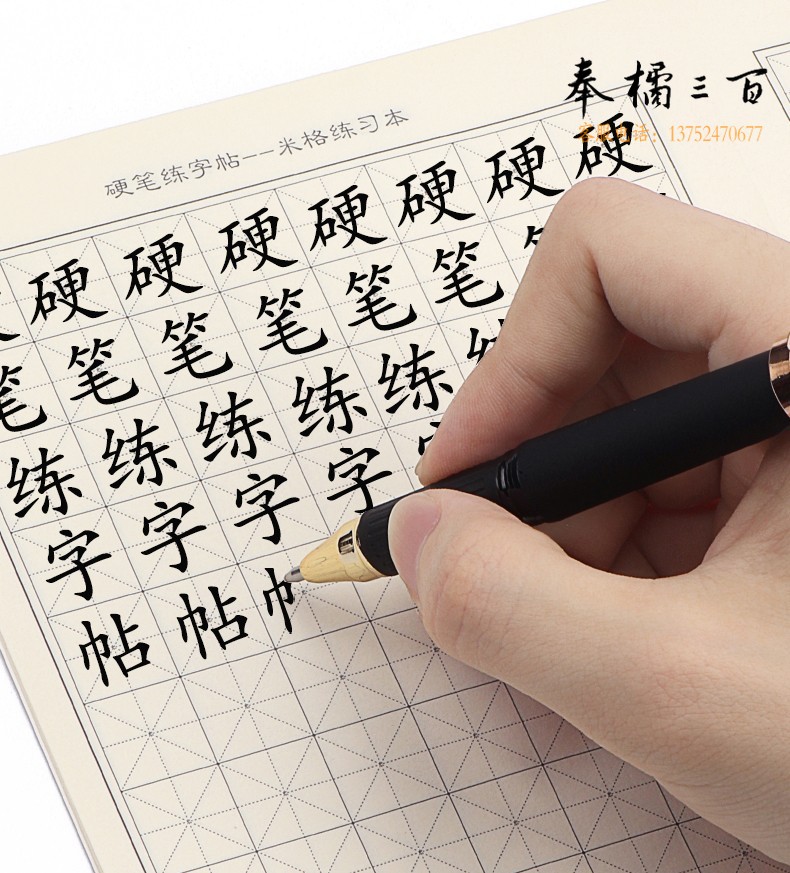 奉橘三百
客服电话：13752470677
硬笔练字帖--米格练习本
硬硬硬硬硬硬硬
笔笔笔笔笔笔
练练练练练
字字字字
帖帖